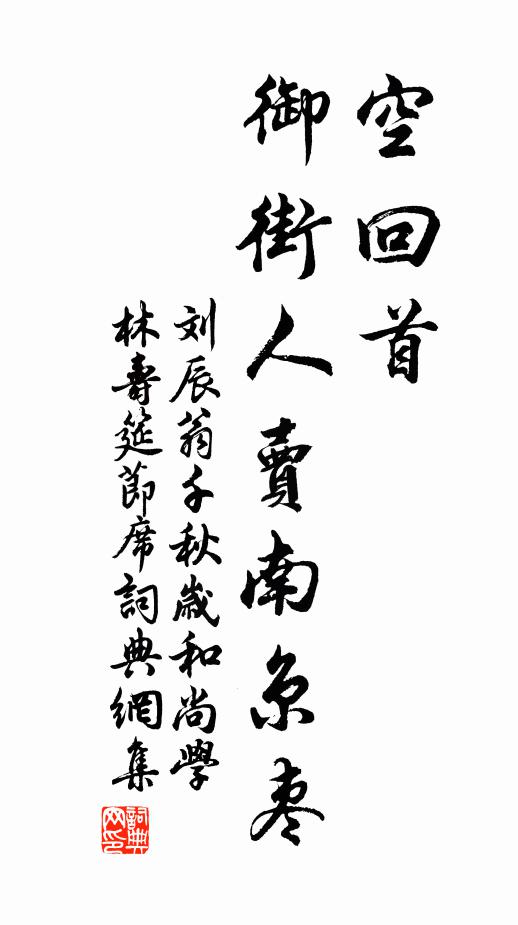 空回首
御街人賣南京枣
刘辰翁千秋歲和尚學
林壽筵節席詞典網集
詞典网印